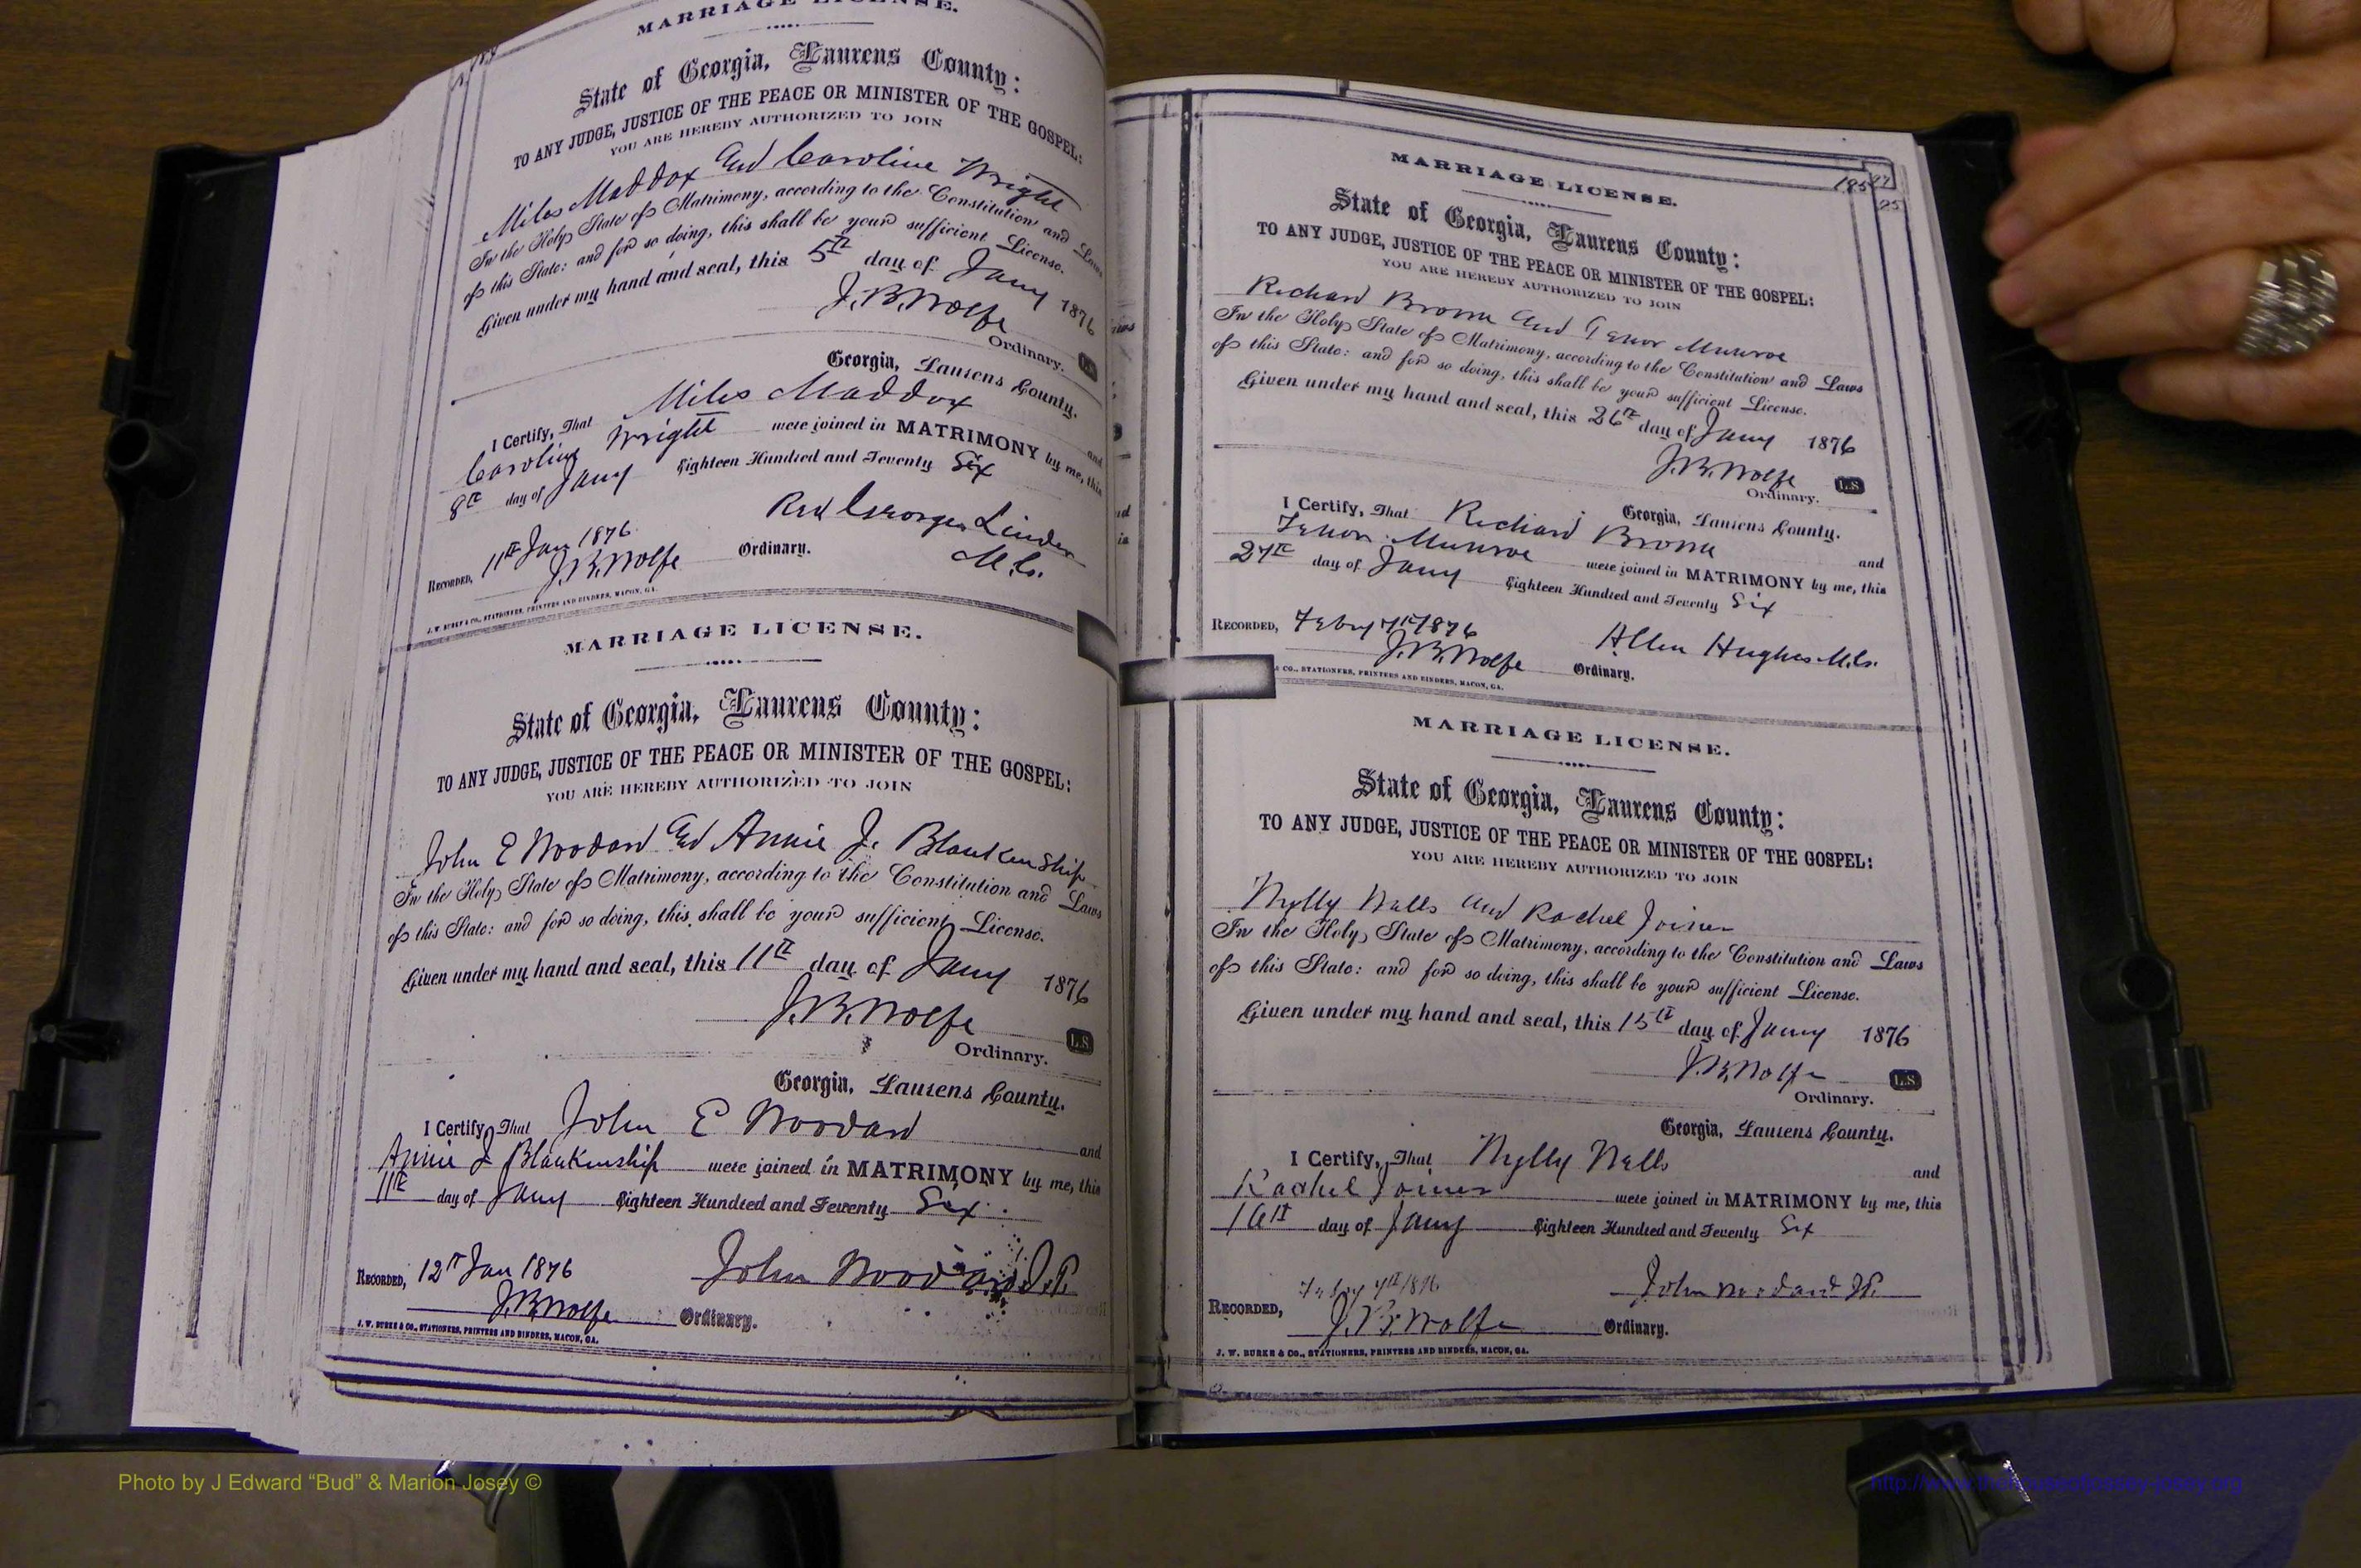 MARRIAGE LICENSE.
State of Georgia, Laurens County:
TO ANY JUDGE, JUSTICE OF THE PEACE OR MINISTER OF THE GOSPEL:
YOU ARE HEREBY AUTHORIZED TO JOIN
Miles Maddox And Caroline Wright
In the Holy State of Matrimony, according to the Constitution and Laws
of this State: and for so doing, this shall be your sufficient License.
Given under my hand and seal, this 5th day of Jany 1876
J.B. Wolfe
Ordinary. L.S.
Georgia, Laurens County.
I Certify, That Miles Maddox and
Caroline Wright were joined in MATRIMONY by me, this
8th day of Jany Eighteen Hundred and Seventy Six
Rev George Linder
M.G.
RECORDED, 11th Jan 1876
J.B. Wolfe Ordinary.
J. W. BURKE & CO., STATIONERS, PRINTERS AND BINDERS, MACON, GA.
MARRIAGE LICENSE.
State of Georgia, Laurens County:
TO ANY JUDGE, JUSTICE OF THE PEACE OR MINISTER OF THE GOSPEL:
YOU ARE HEREBY AUTHORIZED TO JOIN
John E Woodard And Annie J. Blankenship
In the Holy State of Matrimony, according to the Constitution and Laws
of this State: and for so doing, this shall be your sufficient License.
Given under my hand and seal, this 11th day of Jany 1876
J.B. Wolfe
Ordinary. L.S.
Georgia, Laurens County.
I Certify, That John E Woodard and
Annie J Blankenship were joined in MATRIMONY by me, this
11th day of Jany Eighteen Hundred and Seventy Six
John Woodard J.P.
RECORDED, 12th Jan 1876
J.B. Wolfe Ordinary.
J. W. BURKE & CO., STATIONERS, PRINTERS AND BINDERS, MACON, GA.
195
MARRIAGE LICENSE.
State of Georgia, Laurens County:
TO ANY JUDGE, JUSTICE OF THE PEACE OR MINISTER OF THE GOSPEL:
YOU ARE HEREBY AUTHORIZED TO JOIN
Richard Brown And Munroe
In the Holy State of Matrimony, according to the Constitution and Laws
of this State: and for so doing, this shall be your sufficient License.
Given under my hand and seal, this 26th day of Jany 1876
J.B. Wolfe L.S.
Ordinary.
Georgia, Laurens County.
I Certify, That Richard Brown and
Munroe were joined in MATRIMONY by me, this
27th day of Jany Eighteen Hundred and Seventy Six
Allen Hughes M.G.
RECORDED, Feby 7th 1876
J.B. Wolfe Ordinary.
& CO., STATIONERS, PRINTERS AND BINDERS, MACON, GA.
MARRIAGE LICENSE.
State of Georgia, Laurens County:
TO ANY JUDGE, JUSTICE OF THE PEACE OR MINISTER OF THE GOSPEL:
YOU ARE HEREBY AUTHORIZED TO JOIN
Wells and Rachel Joiner
In the Holy State of Matrimony, according to the Constitution and Laws
of this State: and for so doing, this shall be your sufficient License.
Given under my hand and seal, this 15th day of Jany 1876
J.B. Wolfe L.S.
Ordinary.
Georgia, Laurens County.
I Certify, That Wells and
Rachel Joiner were joined in MATRIMONY by me, this
16th day of Jany Eighteen Hundred and Seventy Six
John Woodard J.P.
RECORDED, Feby 7th 1876
J.B. Wolfe Ordinary.
J. W. BURKE & CO., STATIONERS, PRINTERS AND BINDERS, MACON, GA.
Photo by J Edward “Bud” & Marion Josey ©